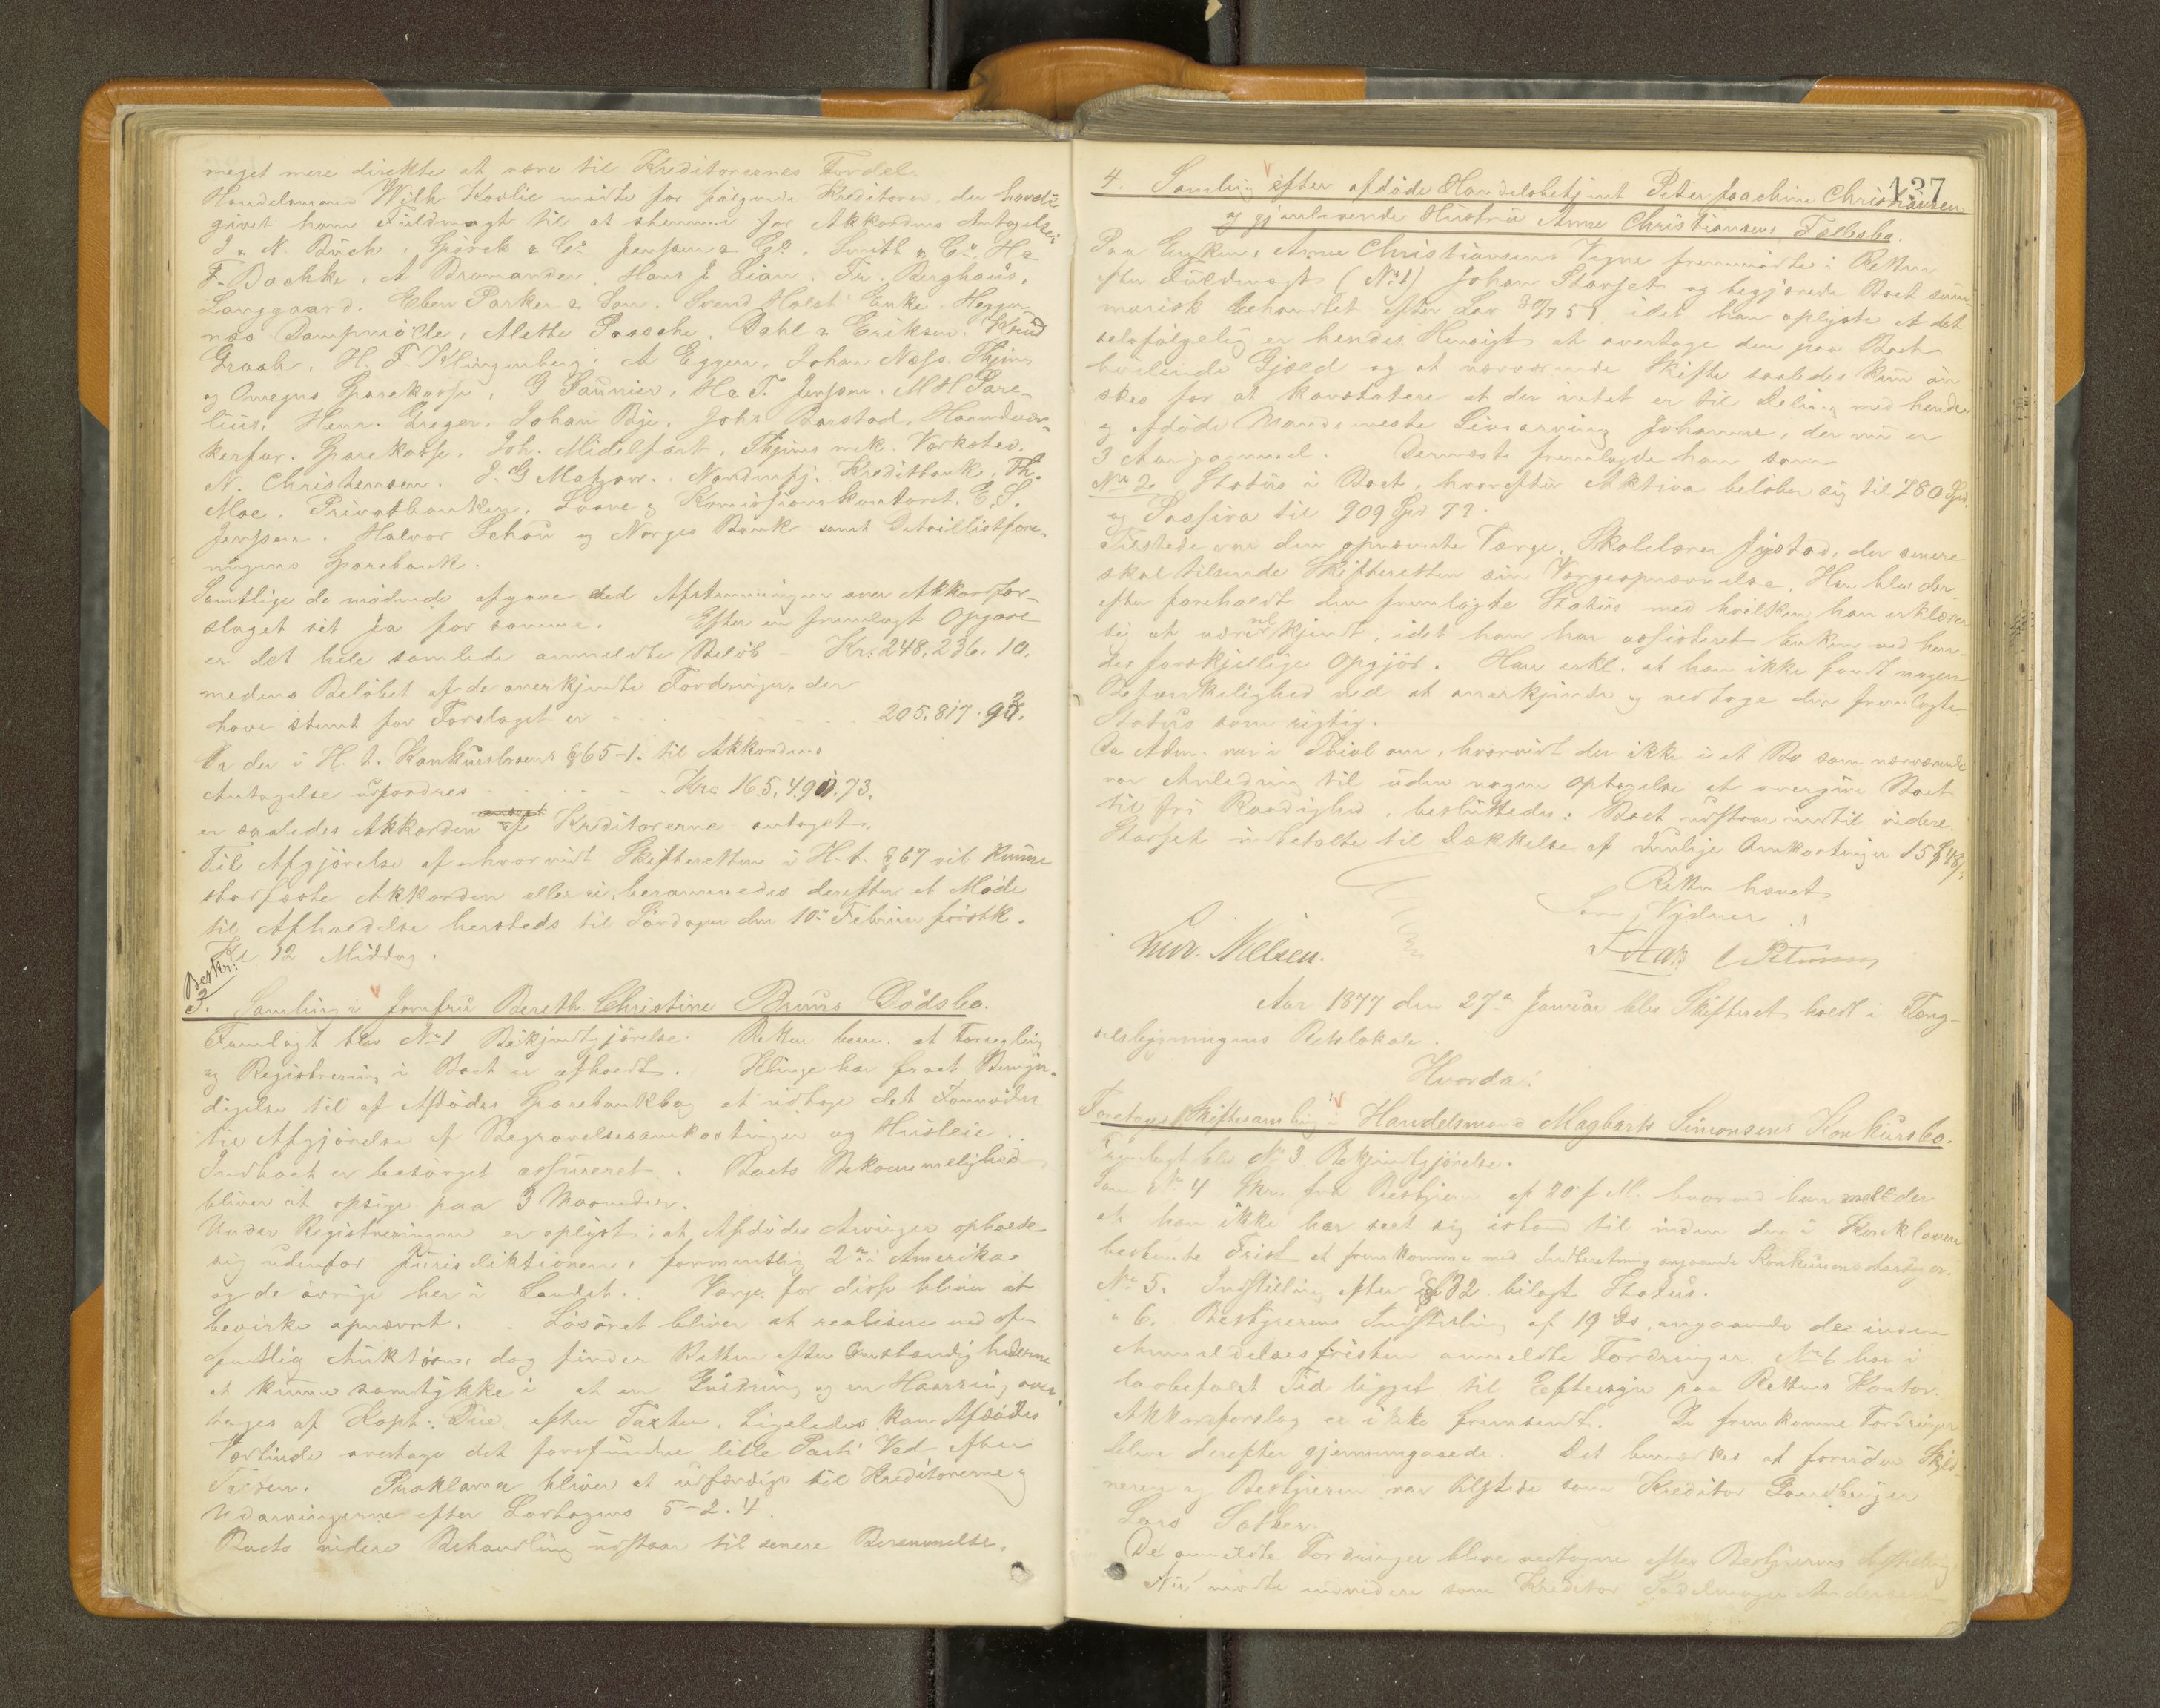 meget mere direkte at være til Kreditorernes Fordel.
Handelsmand Wilh. Kavlie mødte for følgende Kreditorer, der havde
givet ham Fuldmagt til at stemme for Akkordens Antagelse:
J & N. Buch, Jenssen & Co, Smith & Co, H &
F. Bachke, A Bromander, Hans J Lian, Fr. Berghaus,
Langgaard. Eben Parker & Søn. Svend Holst Enke.
Dampmølle, Mette Paasche, Dahl & Eriksen. Knud
Graah, H. F. Klingenberg, A Eggen, Johan Næss. Thjems
og Omegns Sparekasse, G Saunier, H & F. Jenssen. M H Pare-
lius, Henr. Greger. Johan Bye, Johs Barstad, Haandvær-
kerfor. Sparekasse, Joh. Midelfart, Thjems mek. Værksted.
N. Christensen. J. G Matzow. Nordenfj. Kreditbank, Th.
Moe, Privatbanken, Laane & Komissionskontoret, E. S.
Jenssen. Halvor Schou og Norges Bank samt Detaillistfore-
ningens Sparebank.
Samtlige de mødende afgave ved Afstemningen over Akkordfor-
slaget sit Ja for samme. Efter en fremlagt Opgave
er det hele samlede anmeldte Beløb - Kr: 248,236. 10.
medens Beløbet af de anerkjendte Fordringer, der
have stemt for Forslaget er 205,817. 93.
Da der i H. t. Konkurslovens § 65-1. til Akkordens
Antagelse udfordres Kr: 165,490.73.
er saaledes Akkorden af Kreditorerne antaget.
Til Afgjørelse af hvorvidt Skifteretten i H. t. § 67 vil kunne
stadfæste Akkorden eller ei, berammedes derefter et Møde
til Afholdelse hersteds til Lørdagen den 10de Februar førstk.
Kl 12 Middag.
Beskr:
3. Samling i Jomfru Bereth Christine Bruuns Dødsbo.
Fremlagt blev No 1 Bekjendtgjørelse. Retten bem. at Forsegling
og Registrering i Boet er afholdt. Klinge har faaet Bemyn-
digelse til af Afdødes Sparebankbog at udtage det Fornødne
til Afgjørelse af Begravelsesomkostninger og Husleie.
Indboet er besørget assureret. Boets Bekvemmelighed
bliver at opsige paa 3 Maaneder.
Under Registreringen er oplyst, at Afdødes Arvinger opholde
sig udenfor Jurisdiktionen, formentlig 2de i Amerika
og de øvrige her i Landet. Værge for disse bliver at
bevirke opnævnt. Løsøret bliver at realisere ved of-
fentlig Auktion, dog finder Retten efter Omstændighederne
at kunne samtykke i at en Guldring og en Haarring over-
tages af Kapt: Due efter Taxten. Ligeledes kan Afdødes
Værtinde overtage det forefundne lille Parti Ved efter
Taxten. Proklama bliver at udfærdige til Kreditorerne og
Udarvingerne efter Lovbogens 5-2. 4.
Boets videre Behandling udstaar til senere Berammelse.
137
4. Samling efter afdøde Handelsbetjent Peter Joachim Christiansen
og gjenlevende Hustru Anne Christiansens Fællesbo.
Paa Enken, Anne Christiansens Vegne fremmødte i Retten
efter Fuldmagt (No 1) Johan Starset og begjærede Boet sum-
marisk behandlet efter Lov 30/7 51, idet han oplyste at det
selvfølgelig er hendes Hensigt at overtage den paa Boet
hvilende Gjæld og at nærværende Skifte saaledes kun øn-
skes for at konstatere at der intet er til Deling med hendes
og afdøde Mands eneste Livsarving Johanne, der nu er
3 Aar gammel. Dernæst fremlagde han som
No 2. Status i Boet, hvorefter Aktiva beløber sig til 280 Spd.
og Passiva til 909 Spd 77.
Tilstede var den opnævnte Værge, Skolelærer Jystad, der senere
skal tilsende Skifteretten sin Værgeopnævnelse. Han blev der-
efter foreholdt den fremlagte Status med hvilken han erklærer
sig at være vel kjendt, idet han har assisteret Enken ved hen-
des forskjellige Opgjør. Han erkl. at han ikke fandt nogen
Betænkelighed ved at anerkjende og vedtage den fremlagte
Status som rigtig.
Da Adm. var i Tvivl om, hvorvidt der ikke i et Bo som nærværende
var Anledning til uden nogen Optagelse at overgive Boet
til fri Raadighed, besluttedes: Boet udstaar indtil videre.
Starset indbetalte til Dækkelse af Omkostninger 15
Retten hævet
Som Vidner
Ludv. Nielsen.
Aar 1877 den 27de Januar blev Skifteret holdt i Fæng-
selsbygningens Retslokale.
Hvorda:
Foretoges Skiftesamling i Handelsmand Magbarth Simonsens Konkursbo.
Fremlagt blev No 3 Bekjendtgjørelse.
Som No 4 Skr. fra Bestyreren af 20 f M. hvorved han melder
at han ikke har seet sig istand til inden den i Konkloven
bestemte Frist at fremkomme med Indberetning angaaende Konkursens Aarsager.
No 5. Indstilling efter § 32 bilagt Status.
" 6. Bestyrerens Indstilling af 19 ds, angaaende de inden
Anmeldelsesfristen anmeldte Fordringer. No 6 har i
lovbefalet Tid ligget til Eftersyn paa Rettens Kontor.
Akkordforslag er ikke fremsendt. De fremkomne Fordringer
bleve derefter gjennemgaaede. Det bemærkes at foruden Skyld-
neren og Bestyreren var tilstede som Kreditor Gaardbruger
Lars Sæther.
De anmeldte Fordringer bleve vedtagne efter Bestyrerens Indstilling
Nu mødte endvidere som Kreditor Sadelmager Andersen